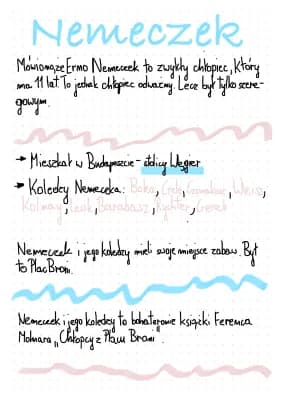 Nemeczek
Erno Nemeczek to zwykły chłopiec, który
ma 11 lat. To jednak chłopiec odważny. Lecz był tylko szere-
gowym.
→ Mieszkał w Budapeszcie - stolicy Węgier
→ Koledzy Nemeczka: Boka, Csele, Weiss,
Kolnay, Barabasz, Richter, Gereb
Nemeczek i jego koledzy mieli swoje miejsce zabaw. Był
to Plac Broni.
Nemeczek i jego koledzy to bohaterowie książki Ferenca
Molnara „Chłopcy z Placu Broni.